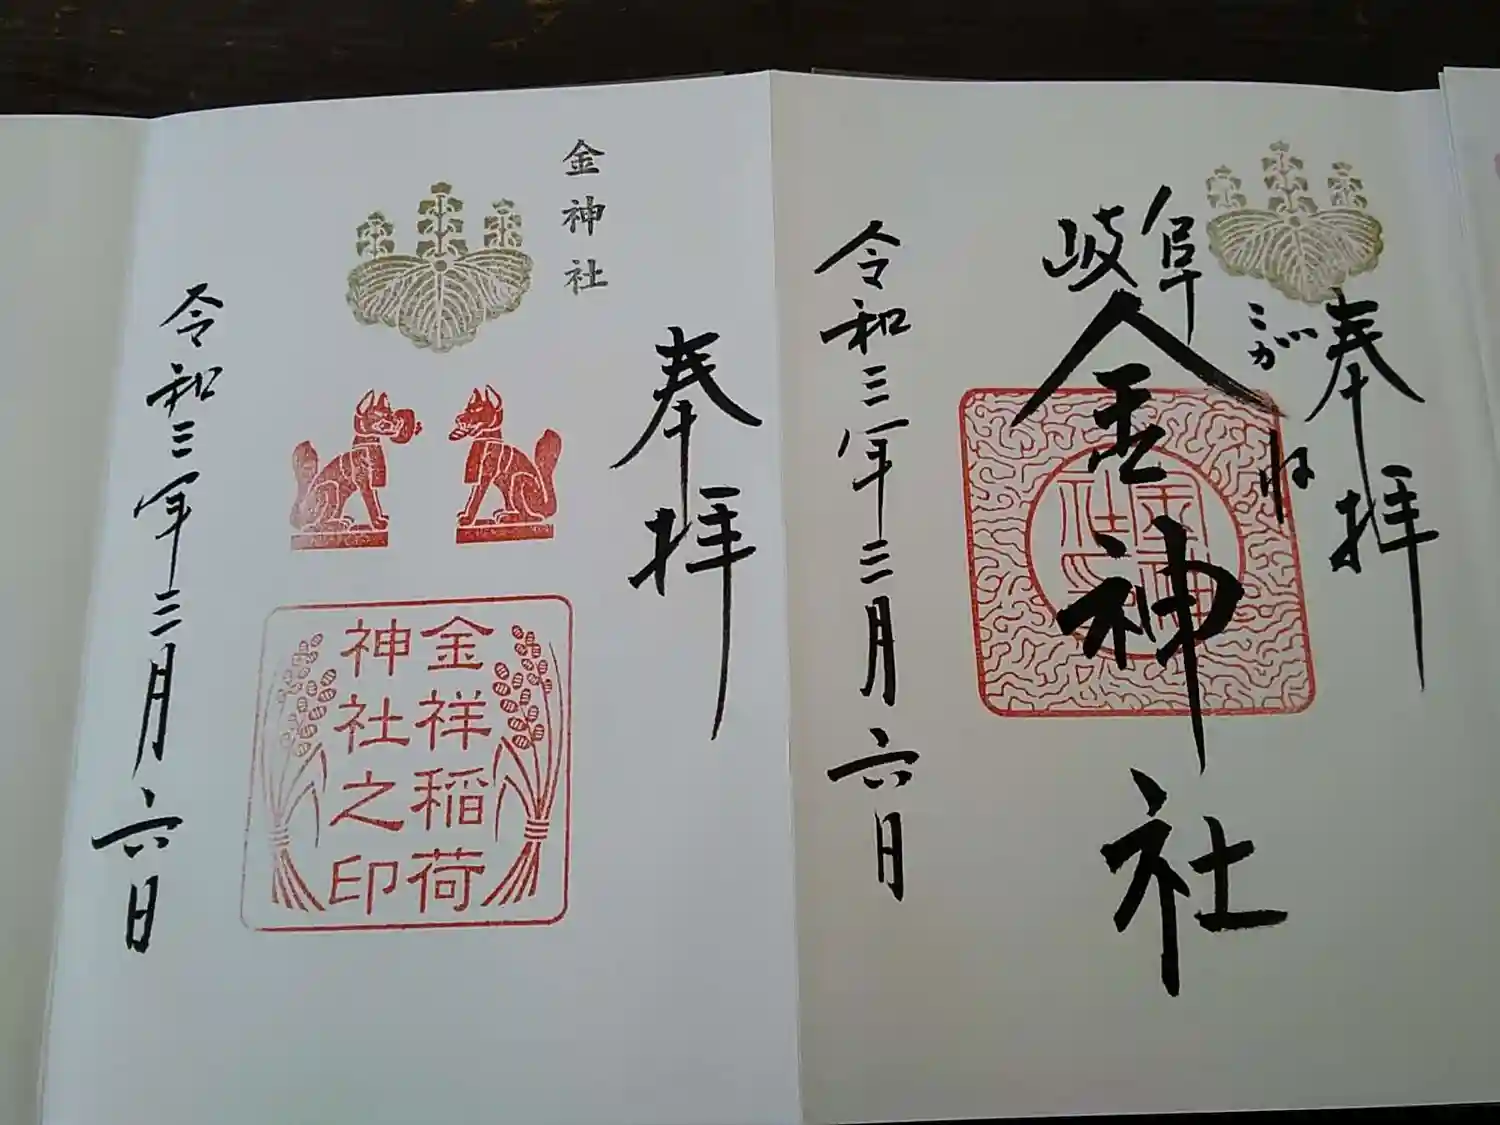 奉拝
岐阜
こがね
金神社
金神社
令和三年三月六日
金神社
奉拝
金祥稲荷
神社之印
令和三年三月六日